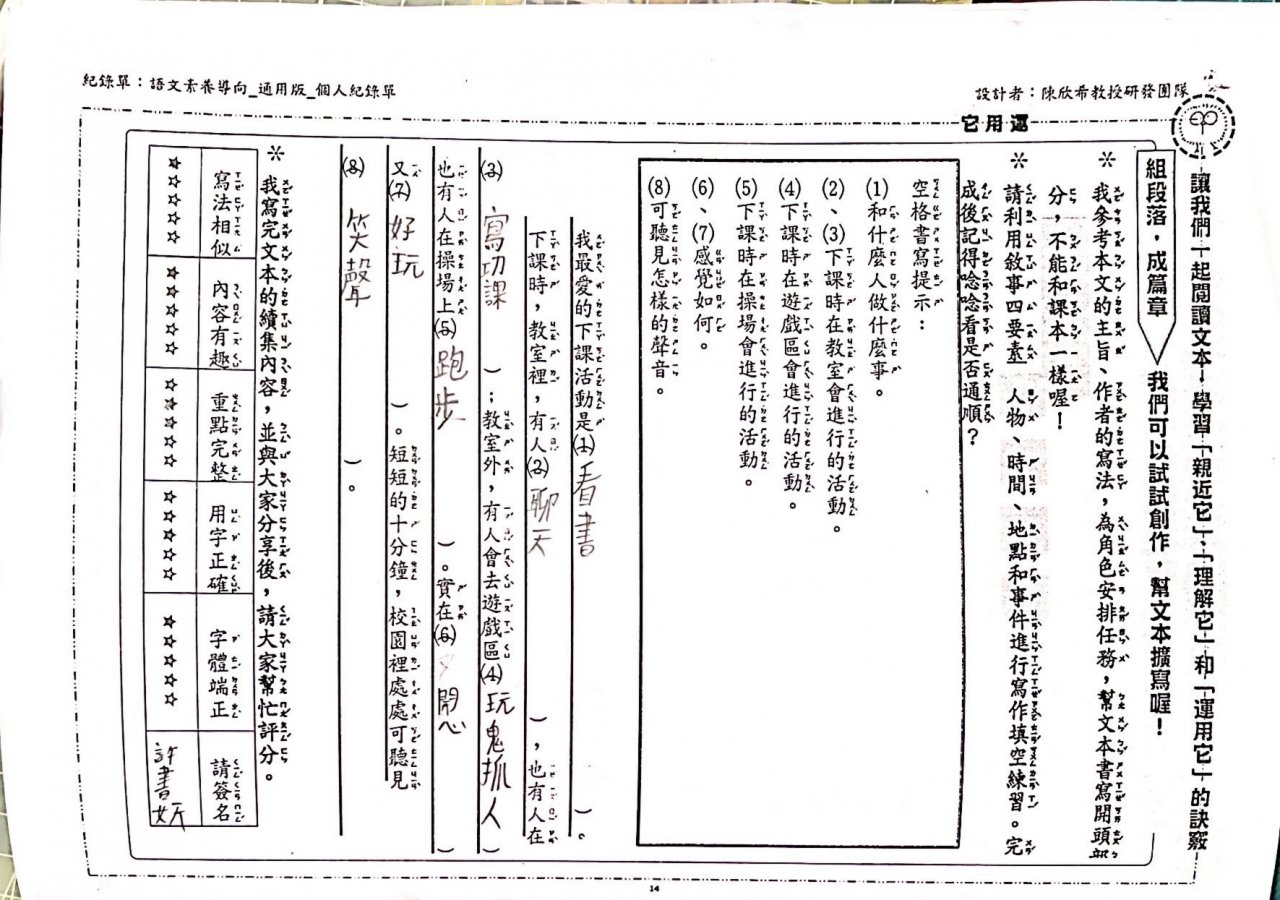 紀錄單：語文素養導向_通用版_個人紀錄單
設計者：陳欣希教授研發團隊
讓我們一起閱讀文本，學習「親近它」、「理解它」和「運用它」的訣竅
運用它
組段落，成篇章
我們可以試試創作，幫文本擴寫喔！
＊我參考本文的主旨、作者的寫法，為角色安排任務，幫文本書寫開頭部
分，不能和課本一樣喔！
＊請利用敘事四要素 人物、時間、地點和事件進行寫作填空練習。完
成後記得唸唸看是否通順？
空格書寫提示：
(1)和什麼人做什麼事。
(2)、(3)下課時在教室會進行的活動。
(4)下課時在遊戲區會進行的活動。
(5)下課時在操場會進行的活動。
(6)、(7)感覺如何。
(8)可聽見怎樣的聲音。
我最愛的下課活動是(1)看書)。
下課時，教室裡，有人(2)聊天)，也有人在
(3)寫功課)；教室外，有人會去遊戲區(4)玩鬼抓人)
也有人在操場上(5)跑步)。實在(6)開心)
又(7)好玩)。短短的十分鐘，校園裡處處可聽見
(8)笑聲)。
＊我寫完文本的續集內容，並與大家分享後，請大家幫忙評分。
寫法相似 內容有趣 重點完整 用字正確 字體端正 請簽名
☆☆☆☆☆ ☆☆☆☆☆ ☆☆☆☆☆ ☆☆☆☆☆ ☆☆☆☆☆ 許書妡
14